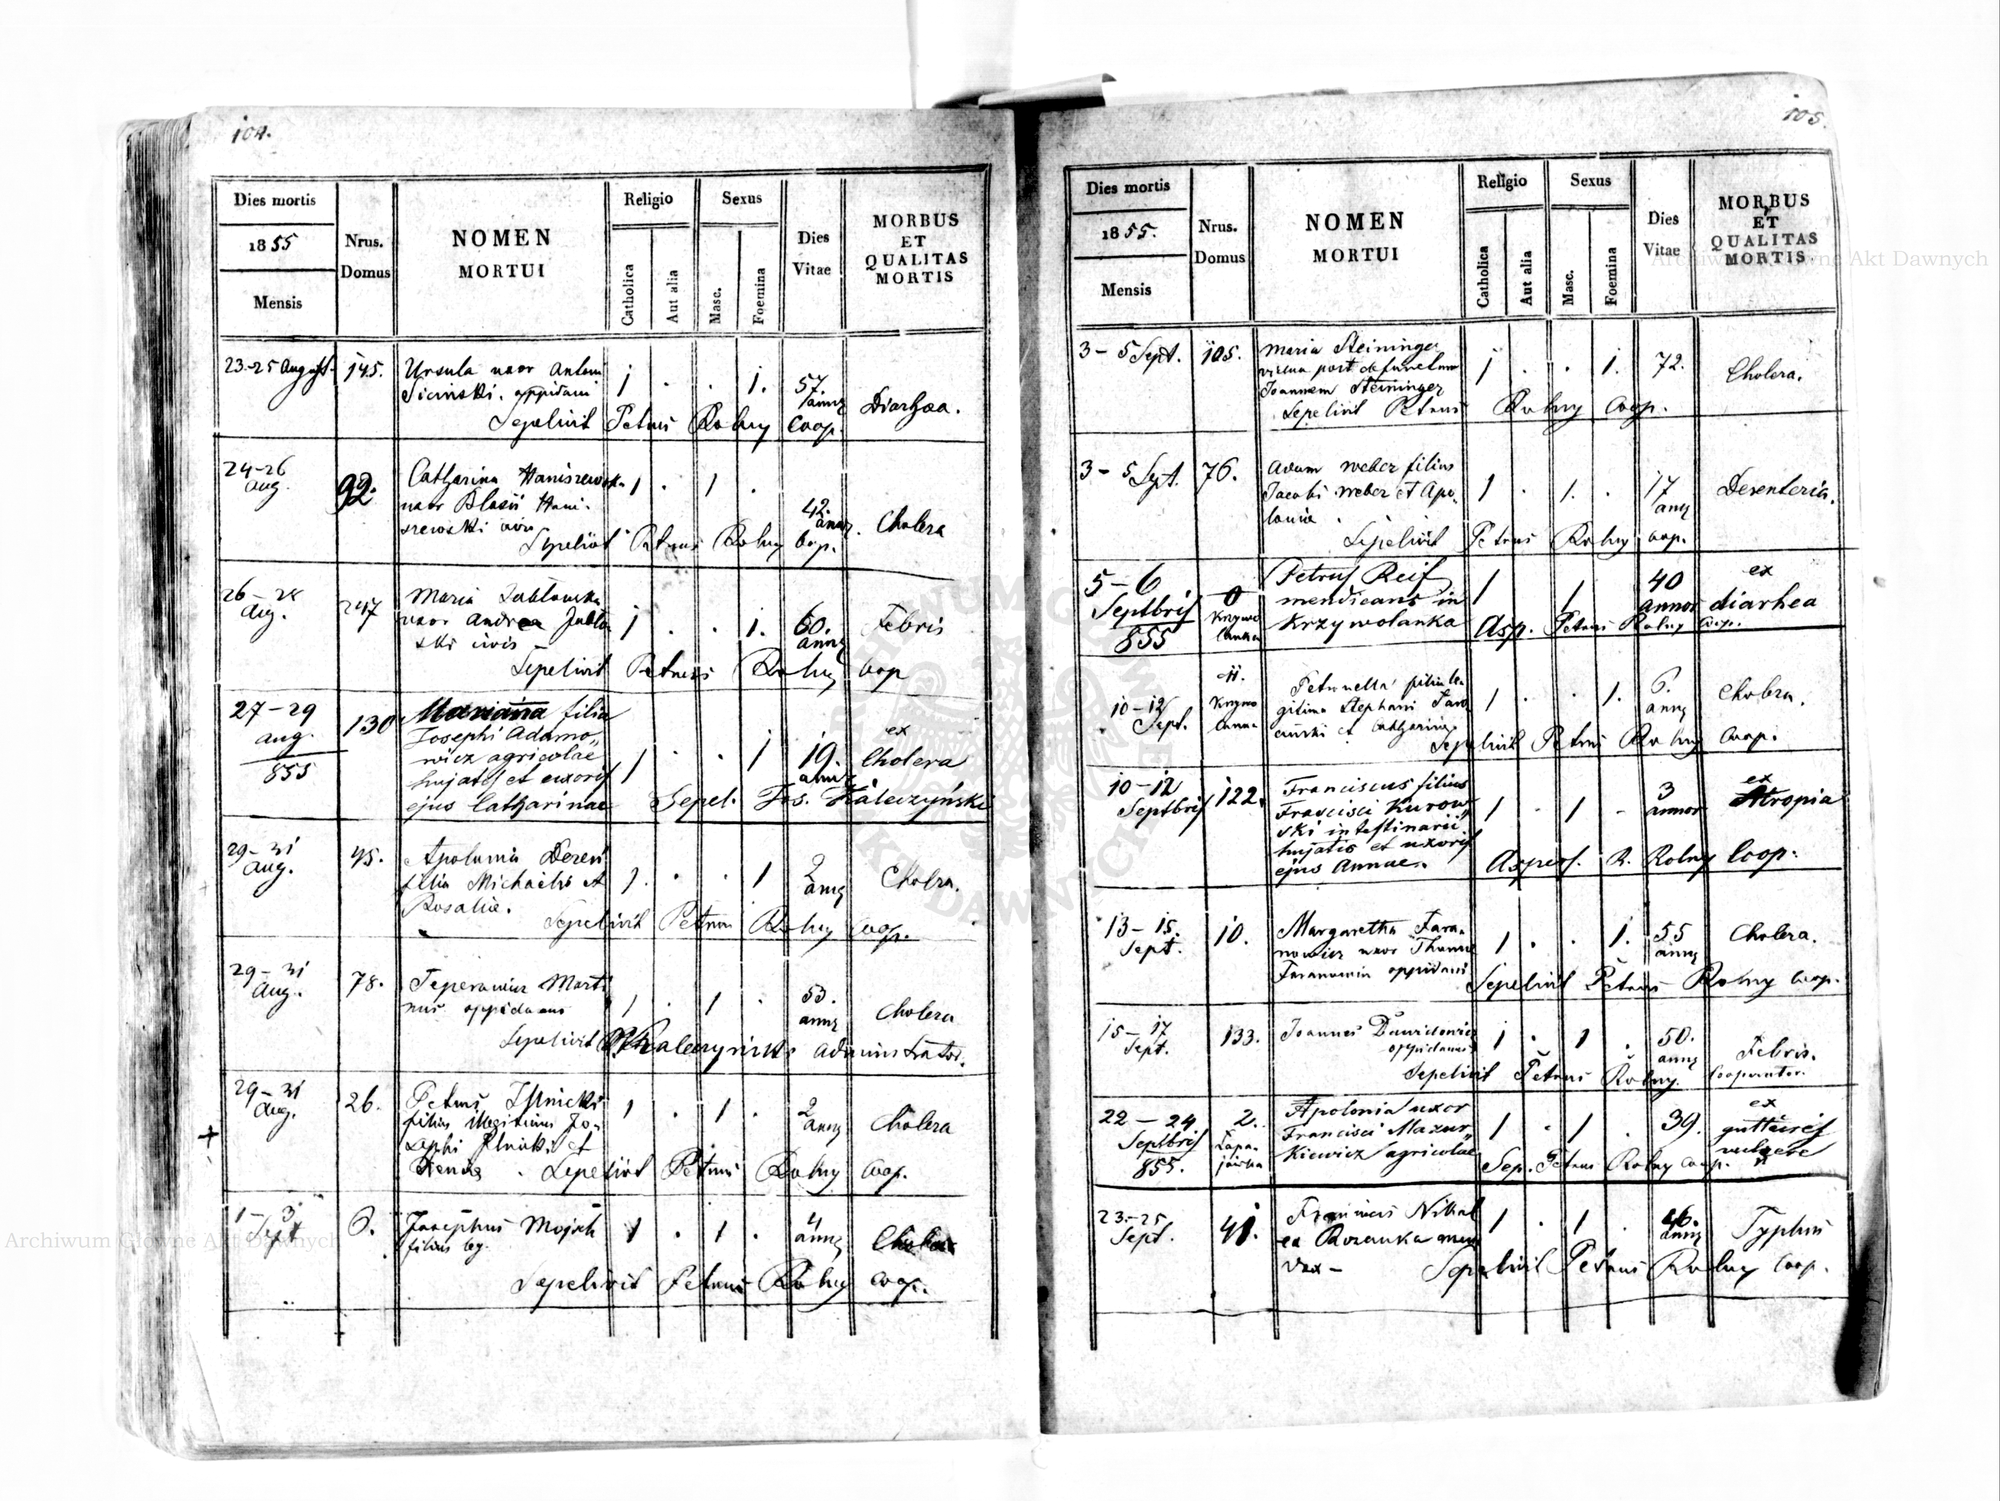 104.
Dies mortis
1855
Mensis
Nrus.
Domus
NOMEN
MORTUI
Religio
Catholica
Aut alia
Sexus
Masc.
Foemina
Dies
Vitae
MORBUS
ET
QUALITAS
MORTIS
23-25 August. 145. Ursula uxor Antoni 1 . . 1. 57.
Siciński. oppidani annor Diarhaea.
Sepelivit Petrus Rolny Coop.
24-26 92. Catharina Haniszewska 1 . 1 .
aug. uxor Blasii Hani- 42.
szewski annor. Cholera
Sepelivit Petrus Rolny Coop.
26-28 247 Maria Jabłonska
Aug. uxor Andrea Jabło 1 . . 1. 60. Febris
ski civis annor
Sepelivit Petrus Rolny Coop
27-29 130 Marianna filia
aug. Josephi Adamo„ ex
855 wicz agricolae 1 . . 1 19. Cholera
hujatis et uxoris annor
ejus Catharinae Sepel. Jos. Kaleczyński
29-31 45. Apolonia Dereń 2
Aug. filia Michaelis et 1. . . 1 annor Cholera.
Rosalia.
Sepelivit Petrus Rolny Coop.
29-31 78. Martinus oppidanus 1 . 1 . 53.
Aug. annor Cholera
Sepelivit Kaleczyński Administrator.
29-31 26. Petrus Ilnicki 1 . 1 . 2
Aug. filius illegitimus Jo- annor Cholera
sephi Ilnicki et
Sepelivit Petrus Rolny Coop.
1-3 6. Josephus 1 . 1 . 4
Sept filius leg. annor Cholera
Sepelivit Petrus Rolny Coop.
105.
Dies mortis
1855.
Mensis
Nrus.
Domus
NOMEN
MORTUI
Religio
Catholica
Aut alia
Sexus
Masc.
Foemina
Dies
Vitae
MORBUS
ET
QUALITAS
MORTIS
3-5 Sept. 105. Maria Steininger
vidua post defunctum 1 . . 1. 72. Cholera.
Joannem Steininger
Sepelivit Petrus Rolny Coop.
3-5 Sept. 76. Adam Weber filius
Jacobi Weber et Apo- 1 . 1. . 17 Desenteria.
lonia. annor
Sepelivit Petrus Rolny Coop.
5-6 0 Petrus Reif 1 1 40 ex
Septbris Krzywo mendicans in annor diarhea
855 lanka Krzywolanka Asp. Petrus Rolny Coop.
10-12 11. Petronella filia le
Sept. Krzywo gitima Stephani 1 . . 1. 6. Cholera.
lanka et Catharina annor
Sepelivit Petrus Rolny Coop.
10-12 122. Franciscus filius 3 ex
Septbris Francisci Kurow 1 . 1 - annor Atropia
ski intestinarii
hujatis et uxoris
ejus Annae. Aspers. P. Rolny Coop.
13-15. 10. Margaretha Tara-
Sept. nowicz uxor Thomae 1 . . 1. 55 Cholera.
oppidani annor
Sepelivit Petrus Rolny Coop.
15-17 133. Joannes Dawidowicz 1 . 1 . 50.
Sept. oppidanus annor Febris.
Sepelivit Petrus Rolny. Cooperator.
22-24 2. Apolonia uxor ex
Septbris Francisci Mazur„ 1 . 1 . 39. gutturis
855. kiewicz agricolae
Sep. Petrus Rolny Coop.
23-25 41. 1 . 1 . 46. Typhus
Sept. ex annor
Sepelivit Petrus Rolny Coop.
Archiwum Główne Akt Dawnych
Archiwum Główne Akt Dawnych
ARCHIWUM GŁÓWNE AKT DAWNYCH